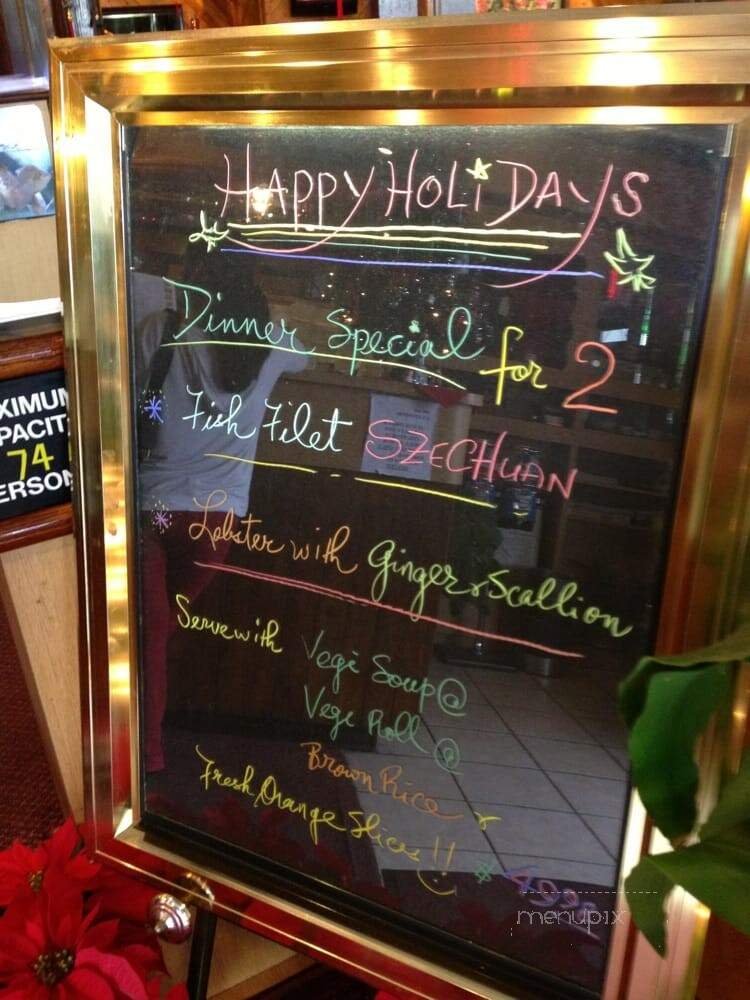 HAPPY HOLiDAYS
Dinner Special for 2
Fish Filet SZECHuAN
Lobster with Ginger & Scallion
Serve with Vegi Soup @
Vegi Roll @
Brown Rice &
Fresh Orange Slices !!
$
XIMUM
PACIT
74
ERSON
menupix